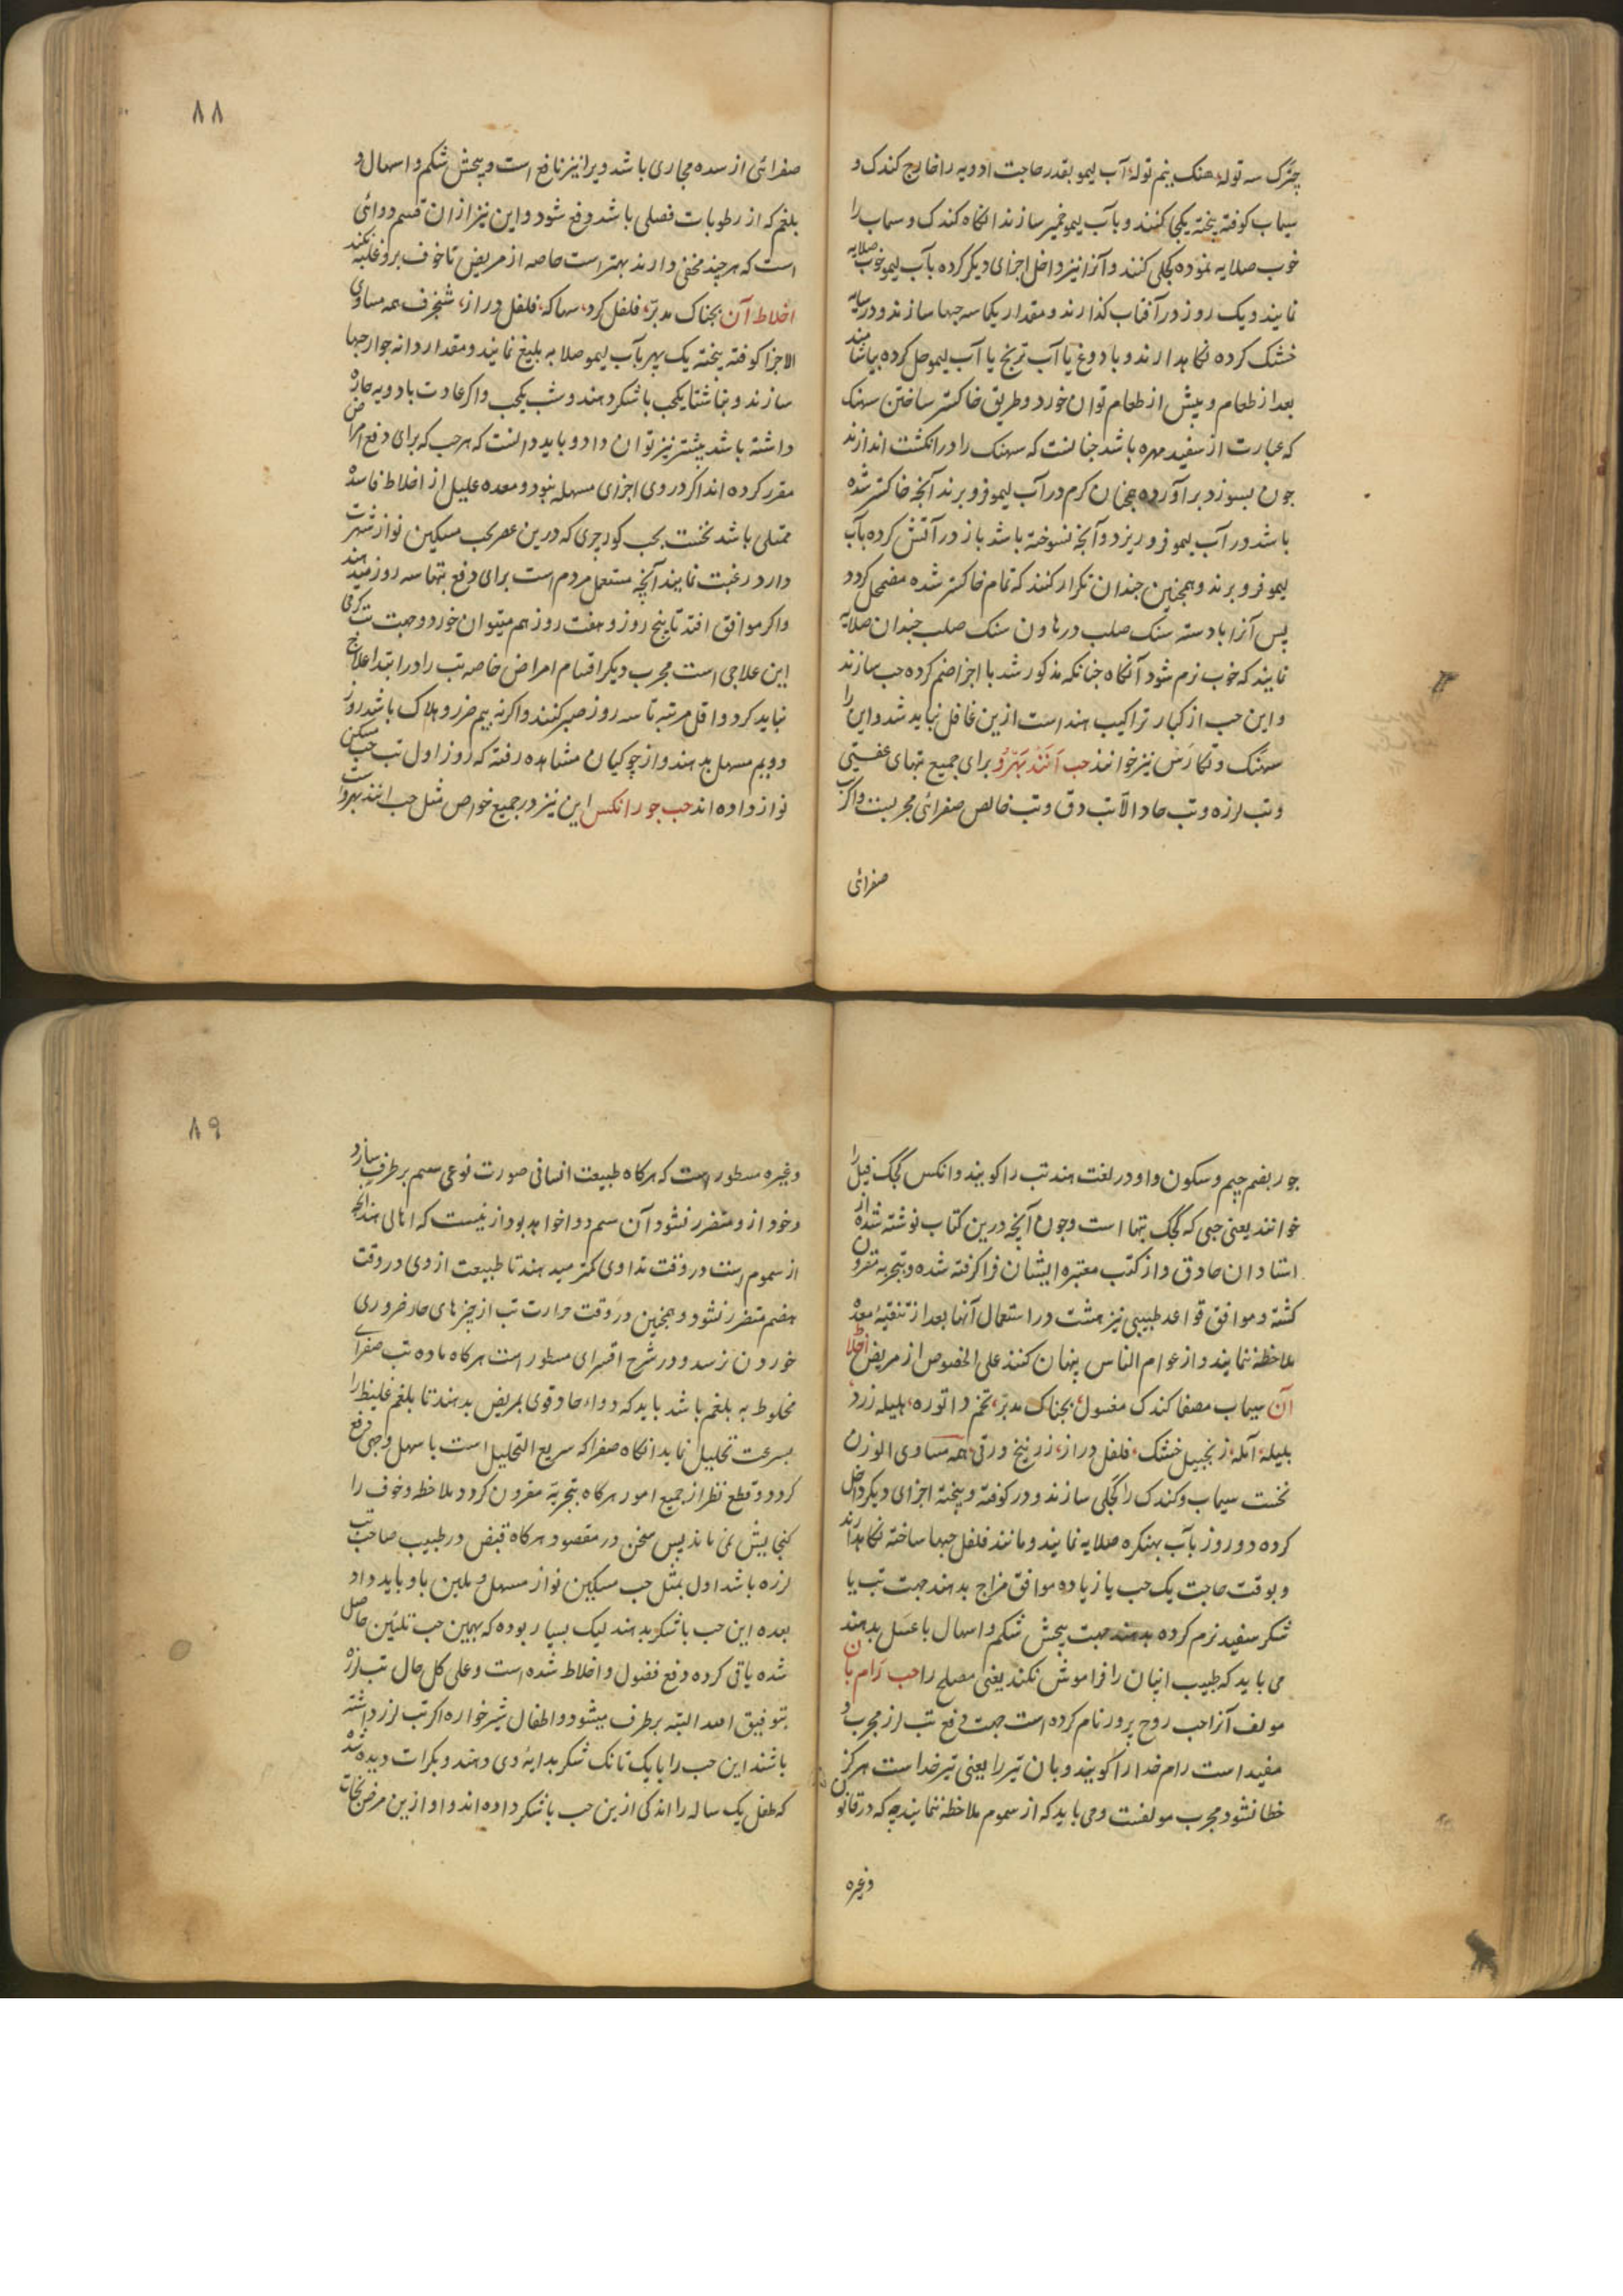 چترک سه توله هنک نیم توله آب لیمو بقدر حاجت ادویه را خارج کندک و
سیماب کوفته بیخته یکجا کنند و بآب لیمو خمیر سازند انکاه کندک و سیماب را
خوب صلایه نموده کجلی کنند و آنرا نیز داخل اجزای دیکر کرده بآب لیمو خوب صلایه
نمایند و یک روز در آفتاب کذارند و مقدار یکماسه حبها سازند و در سایه
خشک کرده نکاهدارند و با دوغ یا آب ترنج یا آب لیمو حل کرده بیاشامند
بعد از طعام و پیش از طعام توان خورد و طریق خاکستر ساختن سهنک
که عبارت از سفید مهره باشد چنانست که سهنک را در انکشت اندازند
چون بسوزد برآورده همچنان کرم در آب لیمو فرو برند آنچه خاکستر شده
باشد در آب لیمو فرو ریزد و آنچه نسوخته باشد باز در آتش کرده بآب
لیمو فرو برند و همچنین چندان تکرار کنند که تمام خاکستر شده مضمحل کردد
پس آنرا با دسته سنک صلب در هاون سنک صلب چندان صلایه
نمایند که خوب نرم شود آنکاه چنانکه مذکور شد با اجزا ضم کرده حب سازند
و این حب از کبار تراکیب هند است ازین غافل نباید شد و این را
سهنک و تکارس نیز خوانند حب انند بهرو برای جمیع تبهای عفنیتی
و تب لرزه و تب حاد الا تب دق و تب خالص صفرائی مجربست و اکر تب
صفرائی
۸۸
صفرائی از سده مجاری باشد ویرا نیز نافع است و پیچش شکم و اسهال و
بلغم که از رطوبات فصلی باشد دفع شود و این نیز از ان قسم دوائی
است که هر چند مخفی دارند بهتر است خاصه از مریض تا خوف برو غلبه نکند
اخلاط آن بجناک مدبر، فلفل کرد، سهاکه، فلفل دراز، شنجرف همه مساوی
الاجزا کوفته بیخته یک پهر بآب لیمو صلایه بلیغ نمایند و مقدار دانه جوار حبها
سازند و بناشتا یکحب با شکر دهند و شب یکحب و اکر عادت بادویه حاره
داشته باشد بیشتر نیز توان داد و باید دانست که هر حب که برای دفع امراض
مقرر کرده اند اکر در وی اجزای مسهله نبود و معده علیل از اخلاط فاسده
ممتلی باشد نخست بحب کودرچری که درین عصر بحب مسکین نواز شهرت
دارد رغبت نمایند آنچه مستعمل مردم است برای دفع تبها سه روز میدهند
و اکر موافق افتد تا پنج روز و هفت روز هم میتوان خورد و جهت تب کرمی
این علاجی است مجرب دیکر اقسام امراض خاصه تب را در ابتدا علاج
نباید کرد و اقل مرتبه تا سه روز صبر کنند و اکر نه بیم ضرر و هلاک باشد روز
دویم مسهل بدهند و از چوکیان مشاهده رفته که روز اول تب حب مسکین
نواز داده اند حب جور انکس این نیز در جمیع خواص مثل حب انند بهرو است
جور بضم جیم و سکون واو در لغت هند تب را کویند و انکس کجک فیل را
خوانند یعنی حبی که کجک تبها است و چون آنچه درین کتاب نوشته شده از
استادان حاذق و از کتب معتبره ایشان فرا کرفته شده و بتجربه مقرون
کشته و موافق قواعد طبیبی نیز هشت در استعمال آنها بعد از تنقیه معده
ملاحظه ننمایند و از عوام الناس پنهان کنند علی الخصوص از مریض اخلاط
آن سیماب مصفا کندک مغسول، بجناک مدبر، تخم داتوره، هلیله زرد
بلیله، آمله، زنجبیل خشک، فلفل دراز، زرنیخ ورقی همه مساوی الوزن
نخست سیماب و کندک را کجلی سازند و در کوفته و بیخته اجزای دیکر داخل
کرده دو روز بآب بهنکره صلایه نمایند و مانند فلفل حبها ساخته نکاهدارند
و بوقت حاجت یک حب یا زیاده موافق مزاج بدهند جهت تب با
شکر سفید نرم کرده بدهند جهت پیچش شکم و اسهال با عسل بدهند
می باید که طبیب اینان را فراموش نکند یعنی مصلح را حب رام بان
مولف آنرا حب روح پرور نام کرده است جهت دفع تب لرز مجرب و
مفید است رام خدا را کویند و بان تیر را یعنی تیر خداست هرکز
خطا نشود مجرب مولفست و می باید که از سموم ملاحظه ننمایند چه که در قانون
وغیره
۸۹
وغیره مسطور است که هرکاه طبیعت انسانی صورت نوعی سم برطرف سازد
و خود از و متضرر نشود آن سم دوا خواهد بود از نیست که اهالی هند آنچه
از سموم است در وقت تداوی کمتر میدهند تا طبیعت از وی در وقت
هضم متضرر نشود و همچنین در وقت حرارت تب از چیزهای حار ضروری
خوردن نرسد و در شرح اقسرای مسطور است هرکاه ماده تب صفرای
مخلوط به بلغم باشد باید که دواء حاد قوی بمریض بدهند تا بلغم غلیظ را
بسرعت تحلیل نماید انکاه صفرا که سریع التحلیل است باسهل وجهی دفع
کردد و قطع نظر از جمیع امور هرکاه بتجربه مقرون کردد ملاحظه و خوف را
کنجایش نمی ماند پس سخن در مقصود هرکاه قبض در طبیب صاحب تب
لرزه باشد اول بمثل حب مسکین نواز مسهل و ملین باو باید داد
بعده این حب با شکر بدهند لیک بسیار بوده که بهمین حب تلئین حاصل
شده باقی کرده دفع فضول و اخلاط شده است و علی کل حال تب لرزه
بتوفیق الله البته برطرف میشود و اطفال شیر خواره اکر تب لرز داشته
باشند این حب را با یک تانک شکر بدایهٔ وی دهند و بکرات دیده شده
که طفل یک ساله را اندکی ازین حب با شکر داده اند و او ازین مرض نجات